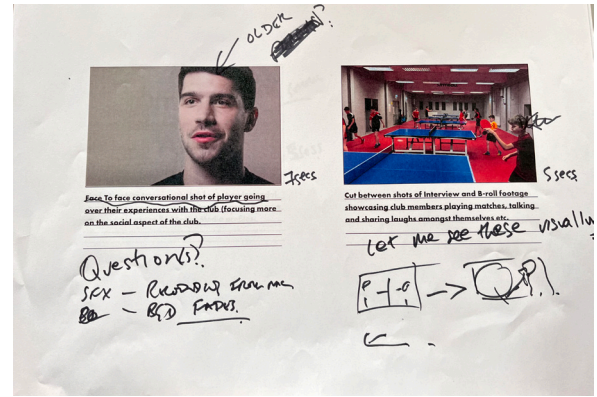 OLDER ?
7secs
Face To face conversational shot of player going
over their experiences with the club (focusing more
on the social aspect of the club.
Questions?
SFX —
— FADES.
5secs
Cut between shots of Interview and B-roll footage
showcasing club members playing matches, talking
and sharing laughs amongst themselves etc.
Let me see these visually